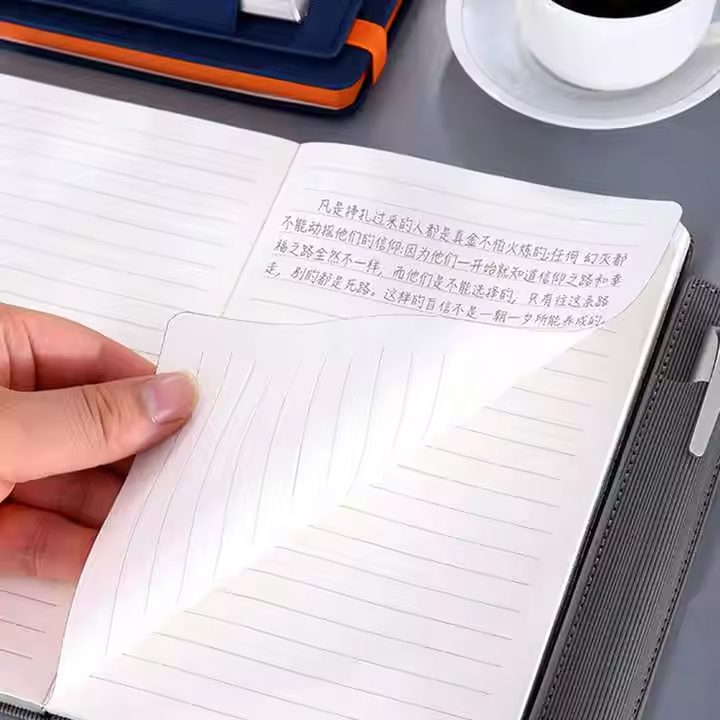 凡是挣扎过来的人都是真金不怕火炼的;任何幻灭都
不能动摇他们的信仰:因为他们一开始就知道信仰之路和幸
福之路全然不一样,而他们是不能选择的,只有往这条路
走,别的都是死路。这样的自信不是一朝一夕所能养成的。